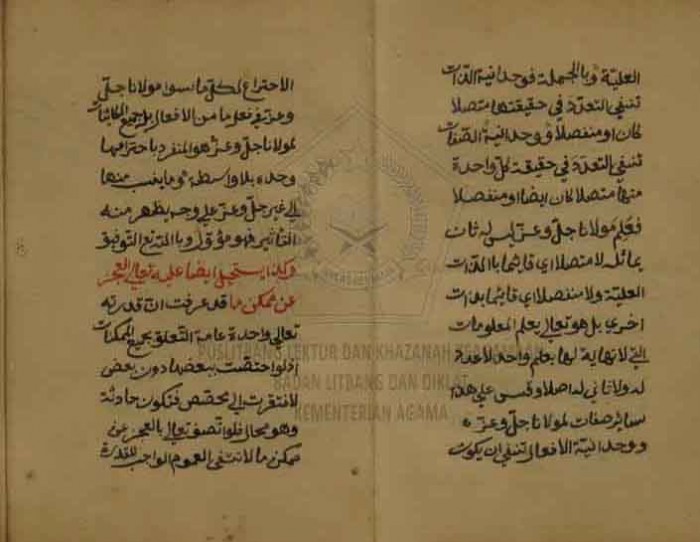 العليّة وبالجملة فوحدانية الذات
تنفي التعدد في حقيقتها متصلا
كان او منفصلا ووحدانية الصفات
تنفي التعدد في حقيقة كل واحدة
منها متصلا كان ايضا او منفصلا
فعلم مولانا جل وعز ليس له ثان
يماثله لا متصلا اي قائما باالذات
العلية ولا منفصلا اي قائما بذات
اخرى بل هو تعالى يعلم المعلومات
التي لا نهاية لها بعلم واحد لا عدد
له ولا ثاني له اصلا وقس على هذا
سائر صفات مولانا جل وعز
ووحدانية الافعال تنفي ان يكون
الاختراع لكل ما سوا مولانا جل
وعز في فعل ما من الافعال بل جميع الكائنات
لمولانا جل وعز هو المنفرد باختراعها
وحده بلا واسطة وما ينسب منها
الى غير جل وعز على وجه يظهر منه
التأثير فهو مؤول وباالله تع التوفيق
وكذا يستحيل ايضا عليه تعالى العجز
عن ممكن ما قد عرفت ان قدرته
تعالى واحدة عامة التعلق بجميع الممكنات
اذ لو اختصت ببعضها دون بعض
لافتقرت الى مخصص فتكون حادثة
وهو محال فلو اتصف تعالى بالعجز عن
ممكن ما لانتفى العموم الواجب للقدرة
PUSLITBANG LEKTUR DAN KHAZANAH KEAGAMAAN
BADAN LITBANG DAN DIKLAT
KEMENTERIAN AGAMA